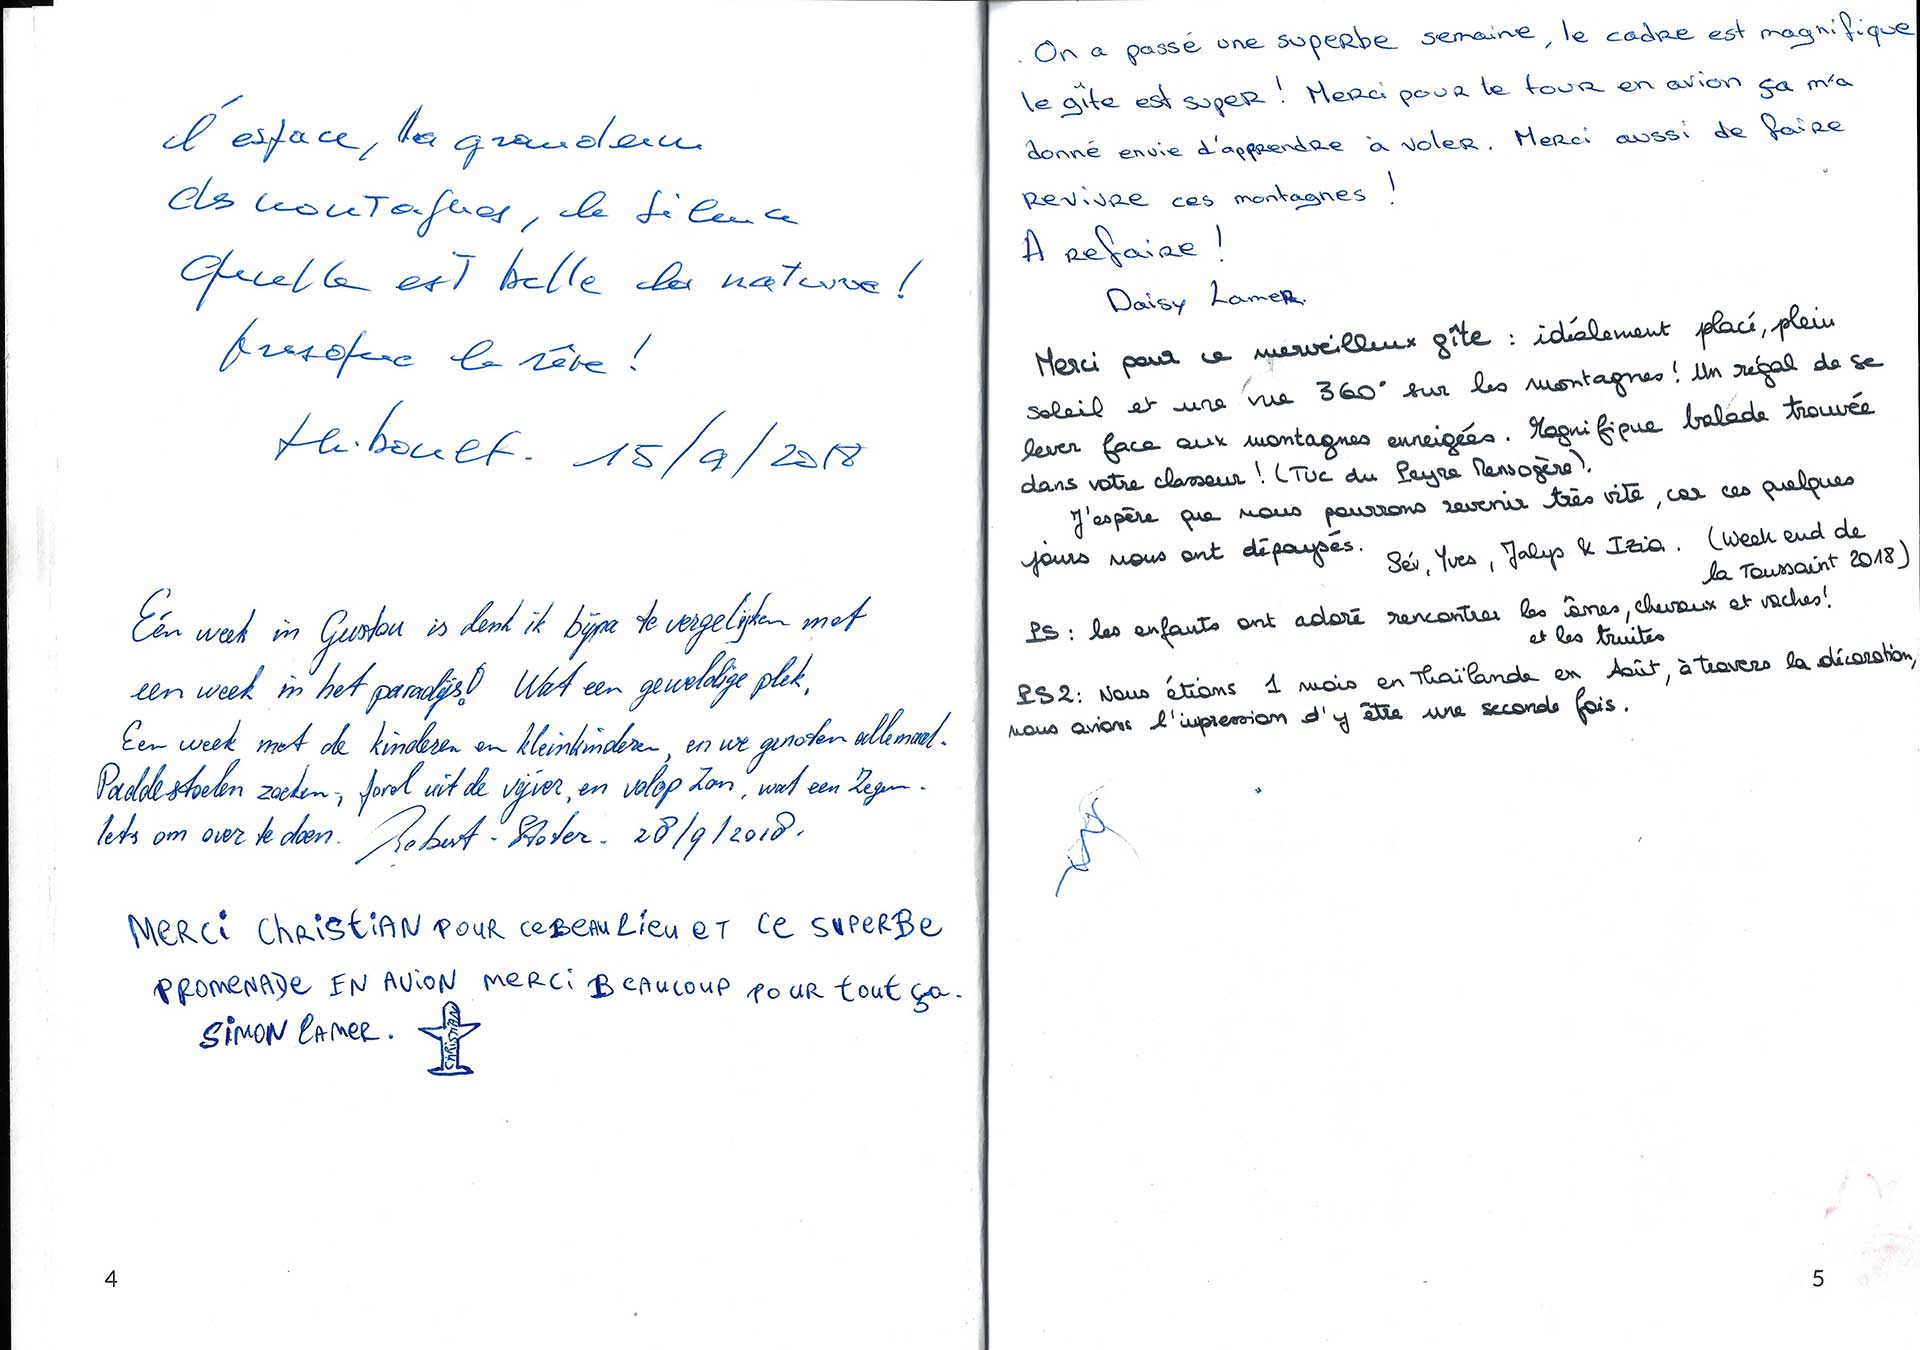 L'espace, la grandeur
des montagnes, le silence
Quelle est belle la nature !
presque le rêve !
Thibouet. 15/9/2018
Eén week in Gustou is denk ik bijna te vergelijken met
een week in het paradijs! Wat een geweldige plek.
Een week met de kinderen en kleinkinderen, en we genoten allemaal.
Paddestoelen zoeken, forel uit de vijver, en volop zon, wat een zegen.
Iets om over te doen. Robert - Stoter. 28/9/2018.
MERCI CHRISTIAN POUR CE BEAU LIEU ET CE SUPERBE
PROMENADE EN AVION MERCI BEAUCOUP POUR tout ça.
SIMON LAMER.
CHRISTIAN
4
On a passé une superbe semaine, le cadre est magnifique
le gîte est super ! Merci pour le tour en avion ça m'a
donné envie d'apprendre à voler. Merci aussi de faire
revivre ces montagnes !
A refaire !
Daisy Lamer.
Merci pour ce merveilleux gîte : idéalement placé, plein
soleil et une vue 360° sur les montagnes ! Un régal de se
lever face aux montagnes enneigées. Magnifique balade trouvée
dans votre classeur ! (Tuc du Peyre Mensogère).
J'espère que nous pourrons revenir très vite, car ces quelques
jours nous ont dépaysés. Sév, Yves, Jalys & Izia. (Week end de
la Toussaint 2018)
PS : les enfants ont adoré rencontrer les ânes, chevaux et vaches !
et les truites
PS2 : Nous étions 1 mois en Thaïlande en Août, à travers la décoration,
nous avions l'impression d'y être une seconde fois.
5